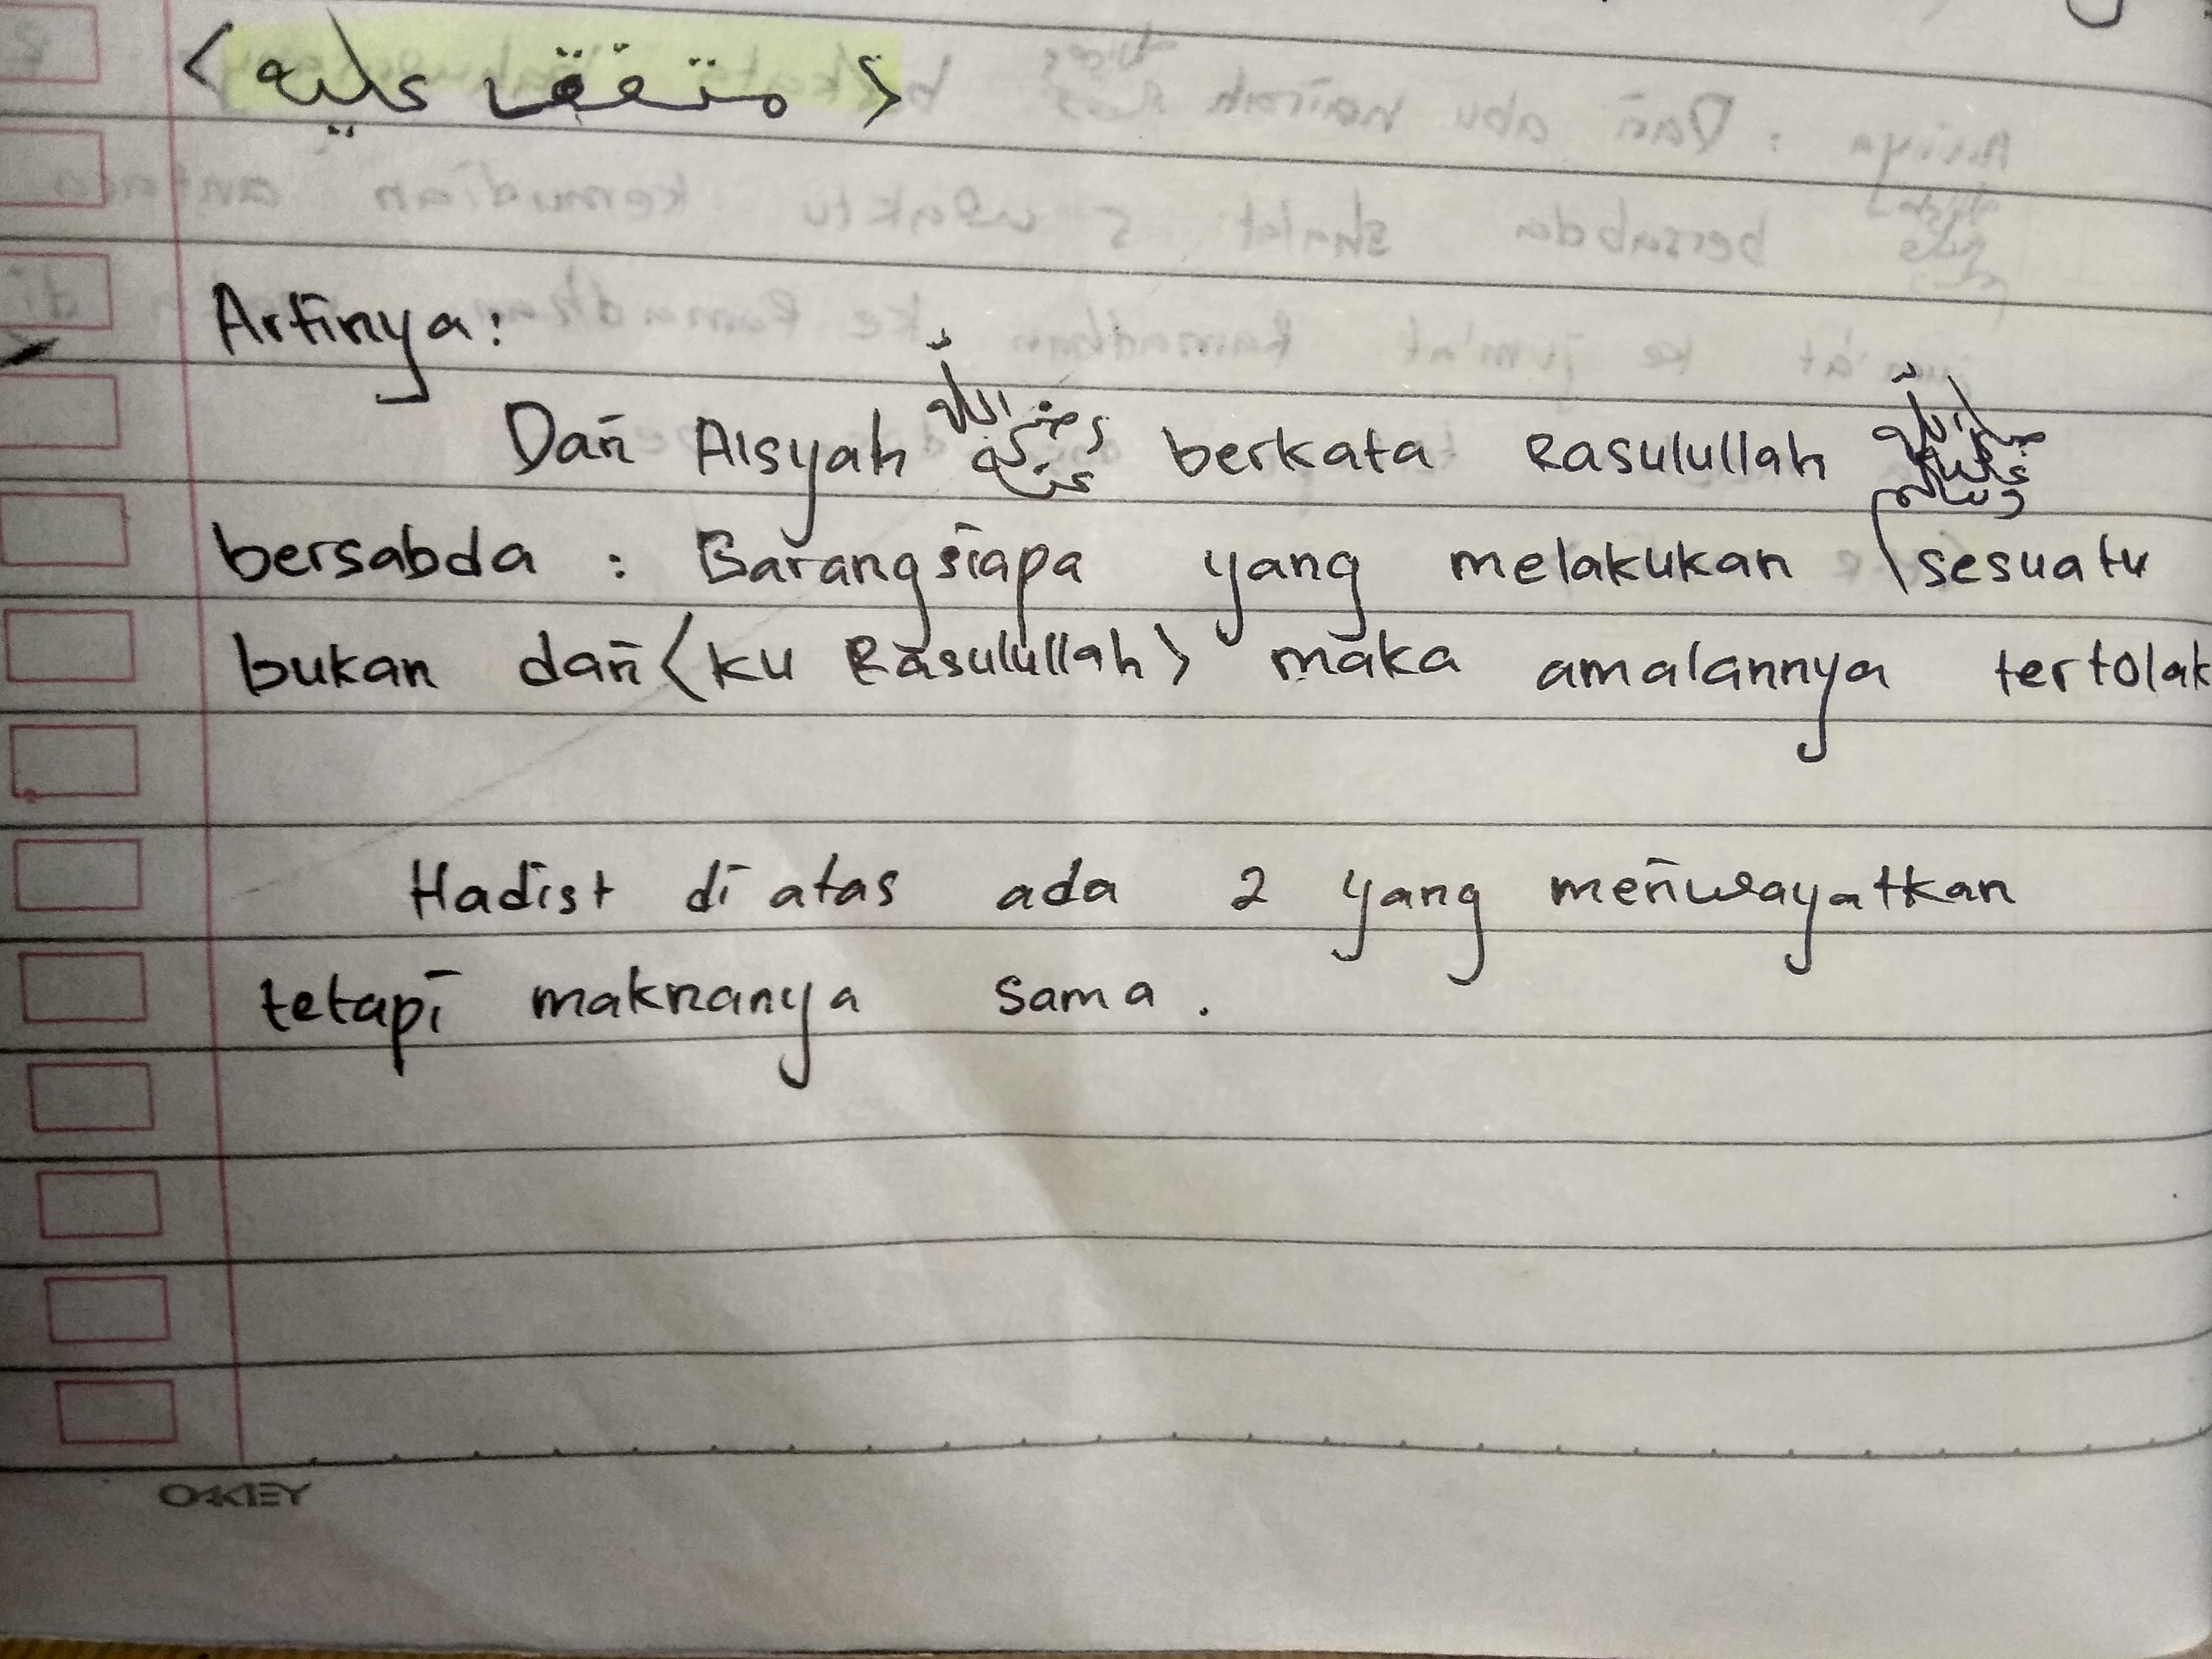 < متفق عليه >
Artinya:
Dari Aisyah رضي الله عنه berkata Rasulullah صلى الله عليه وسلم
bersabda : Barangsiapa yang melakukan sesuatu
bukan dari <ku Rasulullah> maka amalannya tertolak
Hadist di atas ada 2 yang meriwayatkan
tetapi maknanya sama.
OKEY